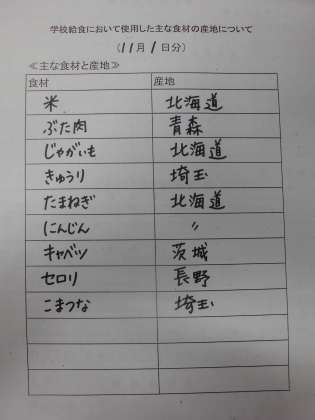 学校給食において使用した主な食材の産地について
(11月1日分)
≪主な食材と産地≫
食材 産地
米 北海道
ぶた肉 青森
じゃがいも 北海道
きゅうり 埼玉
たまねぎ 北海道
にんじん 〃
キャベツ 茨城
セロリ 長野
こまつな 埼玉